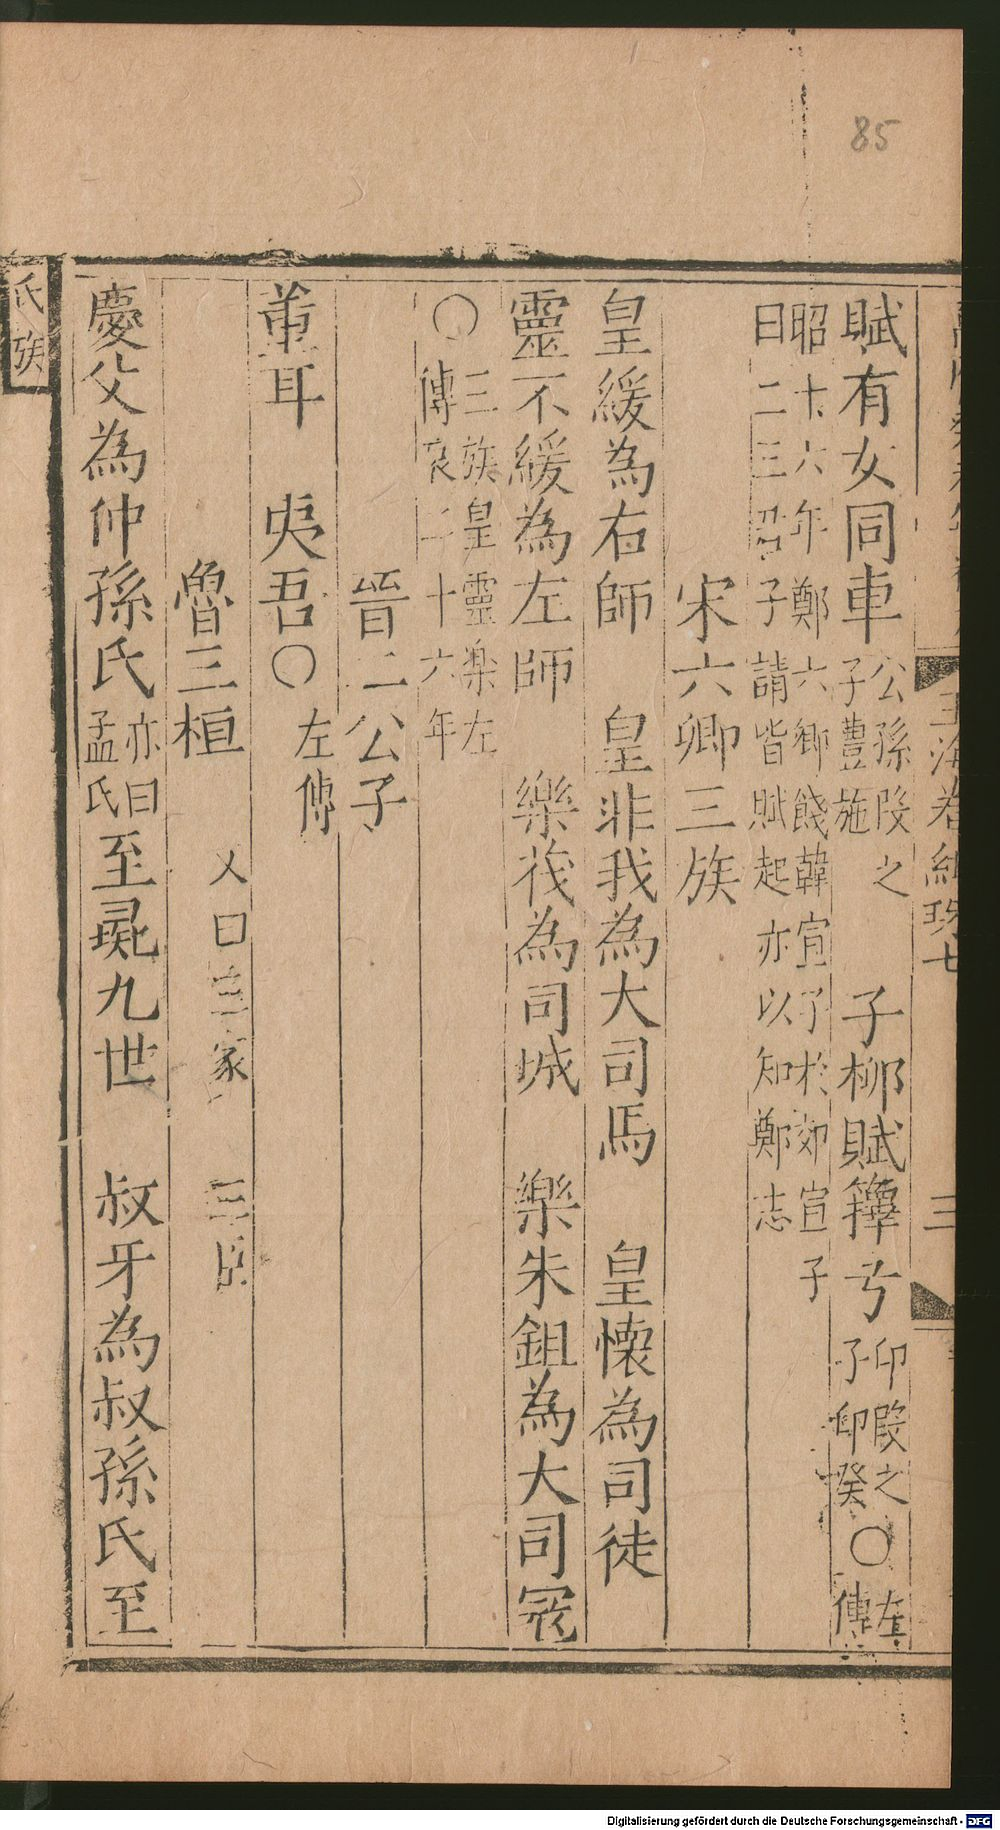 85
玉海卷紺珠七
三
賦有女同車 公孫段之子豐施 子柳賦籜兮 印段之子印癸〇左傳
昭十六年鄭六卿餞韓宣子於郊宣子
曰二三君子請皆賦起亦以知鄭志
宋六卿三族
皇緩為右師 皇非我為大司馬 皇懷為司徒
靈不緩為左師 樂茷為司城 樂朱鉏為大司寇
〇三族皇靈樂左
傳哀二十六年
晉二公子
重耳 夷吾〇左傳
魯三桓 又曰三家 三臣
慶父為仲孫氏 亦曰孟氏 至彘九世 叔牙為叔孫氏至
氏族
Digitalisierung gefördert durch die Deutsche Forschungsgemeinschaft - DFG